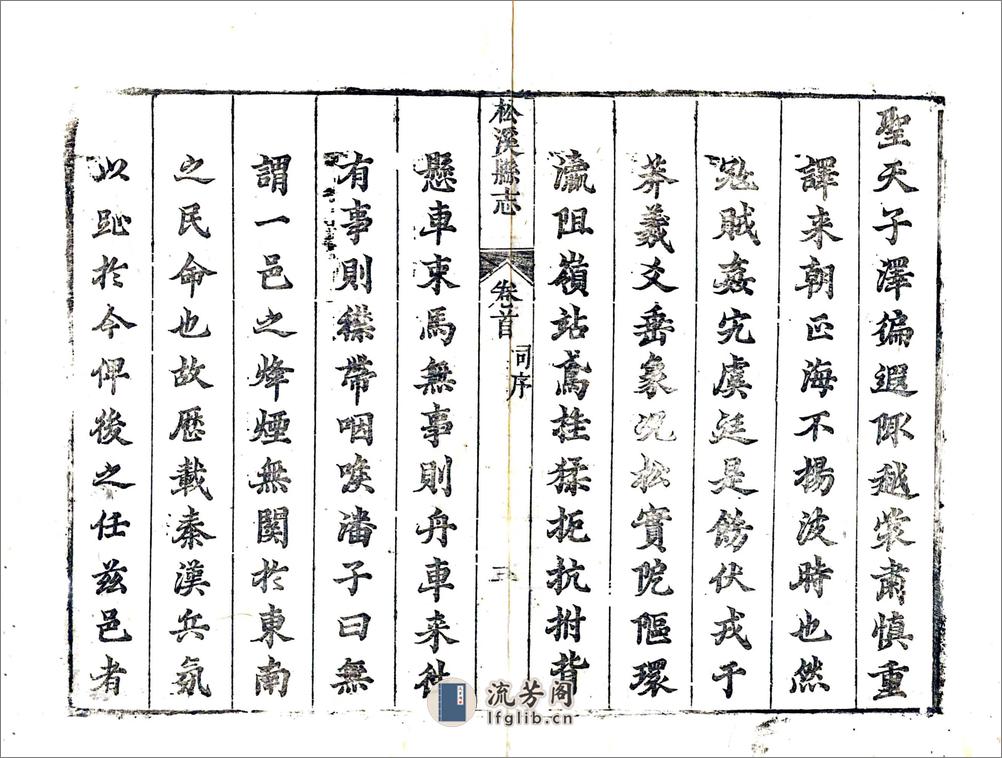 聖天子澤徧遐陬越裳肅慎重
譯来朝四海不揚波時也然
冦賊姦宄虞廷是飭伏戎于
莽羲爻垂象況松實阨傴環
瀛阻嶺站鳶挂猱扼抗拊背
松溪縣志
卷首
同序
三
懸車束馬無事則舟車来徃
有事則襟帶咽喉潘子曰無
謂一邑之烽煙無関於東南
之民命也故歴載秦漢兵氛
以訖於今俾後之任兹邑者
流芳阁
lfglib.cn